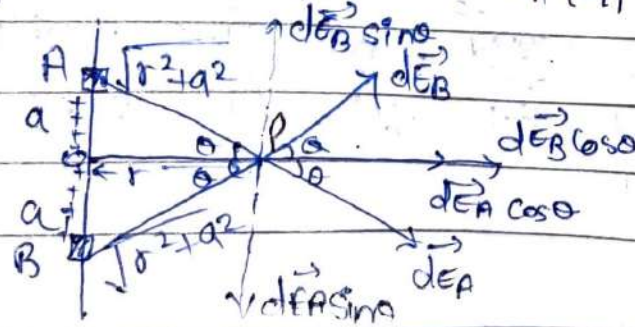 dE⃗_B sinθ
A √r²+a² dE⃗_B
a + + + +
P
O θ θ dE⃗_B cosθ
r θ θ dE⃗_A cosθ
a + +
B √r²+a² dE⃗_A
dE⃗_A sinθ